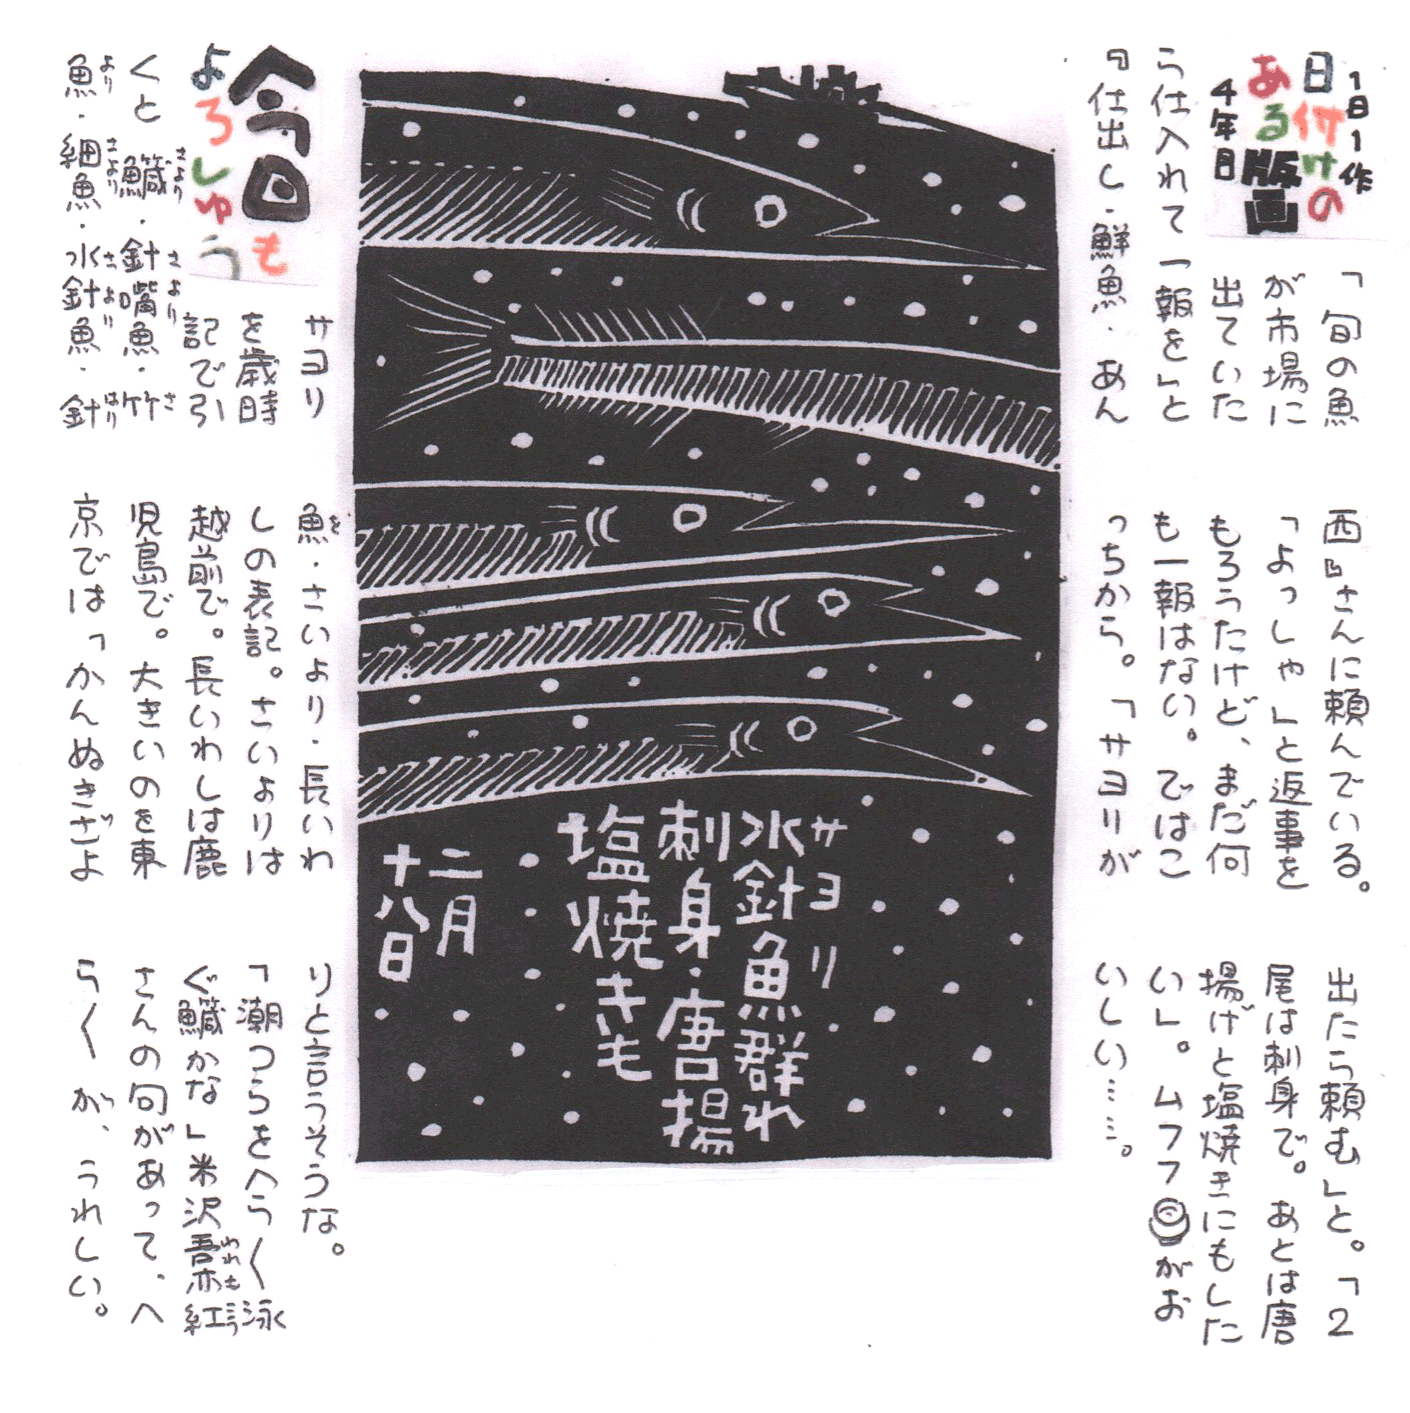 1日1作
日付けの
ある版画
4年目
「旬の魚
が市場に
出ていた
ら仕入れて一報を」と
『仕出し・鮮魚・あん
西』さんに頼んでいる。
「よっしゃ」と返事を
もろうたけど、まだ何
も一報はない。ではこ
っちから。「サヨリが
出たら頼む」と。「2
尾は刺身で。あとは唐
揚げと塩焼きにもした
い」。ムフフがお
いしい……。
サヨリ
水針魚群れ
刺身・唐揚
塩焼きも
二月
十八日
今日も
よろしゅう
サヨリ
を歳時
記で引
さより さより さ
くと鱵・針嘴魚・竹
より さより さより はり
魚・細魚・水針魚・針
を
魚・さいより・長いわ
しの表記。さいよりは
越前で。長いわしは鹿
児島で。大きいのを東
京では「かんぬきざよ
りと言うそうな。
「潮つらをへら〱泳
われもこう
ぐ鱵かな」米沢吾亦紅
さんの句があって、へ
ら〱が、うれしい。